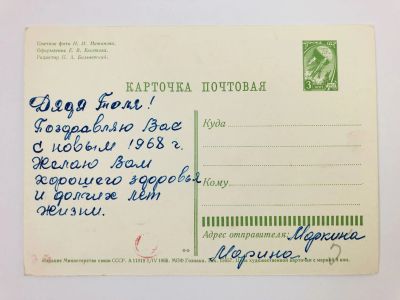 Цветное фото
Оформление Е. В.
Редактор
КАРТОЧКА ПОЧТОВАЯ
3
Дядя Толя!
Поздравляю Вас
с новым 1968 г.
Желаю Вам
хорошего здоровья
и долгих лет
жизни.
Куда
Кому
Адрес отправителя: Маркина
Марина
Издание Министерства связи СССР.